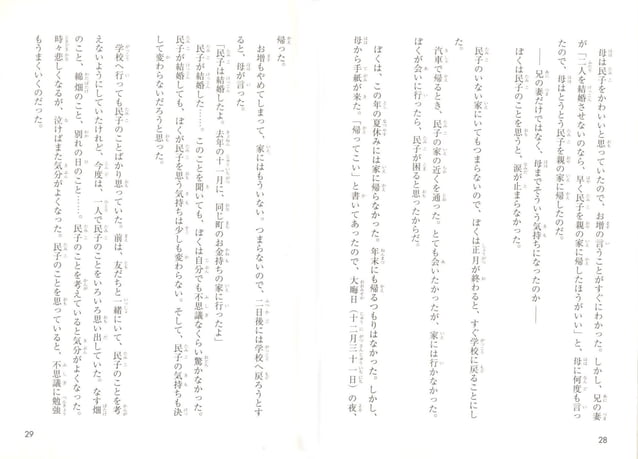 母は民子をかわいいと思っていたので、お増の言うことがすぐにわかった。しかし、兄の妻
が「二人を結婚させないのなら、早く民子を親の家に帰したほうがいい」と、母に何度も言っ
たので、母はとうとう民子を親の家に帰したのだ。
――兄の妻だけではなく、母までそういう気持ちになったのか――
ぼくは民子のことを思うと、涙が止まらなかった。
民子のいない家にいてもつまらないので、ぼくは正月が終わると、すぐ学校に戻ることにし
た。
汽車で帰るとき、民子の家の近くを通った。とても会いたかったが、家には行かなかった。
ぼくが会いに行ったら、民子が困ると思ったからだ。
ぼくは、この年の夏休みには家に帰らなかった。年末にも帰るつもりはなかった。しかし、
母から手紙が来た。「帰ってこい」と書いてあったので、大晦日（十二月三十一日）の夜、
28
帰った。
お増もやめてしまって、家にはもういない。つまらないので、二日後には学校へ戻ろうとす
ると、母が言った。
「民子は結婚したよ。去年の十一月に、同じ町のお金持ちの家に行ったよ」
民子が結婚した……。このことを聞いても、ぼくは自分でも不思議なくらい驚かなかった。
民子が結婚しても、ぼくが民子を思う気持ちは少しも変わらない。そして、民子の気持ちも決
して変わらないだろうと思った。
学校へ行っても民子のことばかり思っていた。前は、友だちと一緒にいて、民子のことを考
えないようにしていたけれど、今度は、一人で民子のことをいろいろ思い出していた。なす畑
のこと、綿畑のこと、別れの日のこと……。民子のことを考えていると気分がよくなった。
時々悲しくなるが、泣けばまた気分がよくなった。民子のことを思っていると、不思議に勉強
もうまくいくのだった。
29